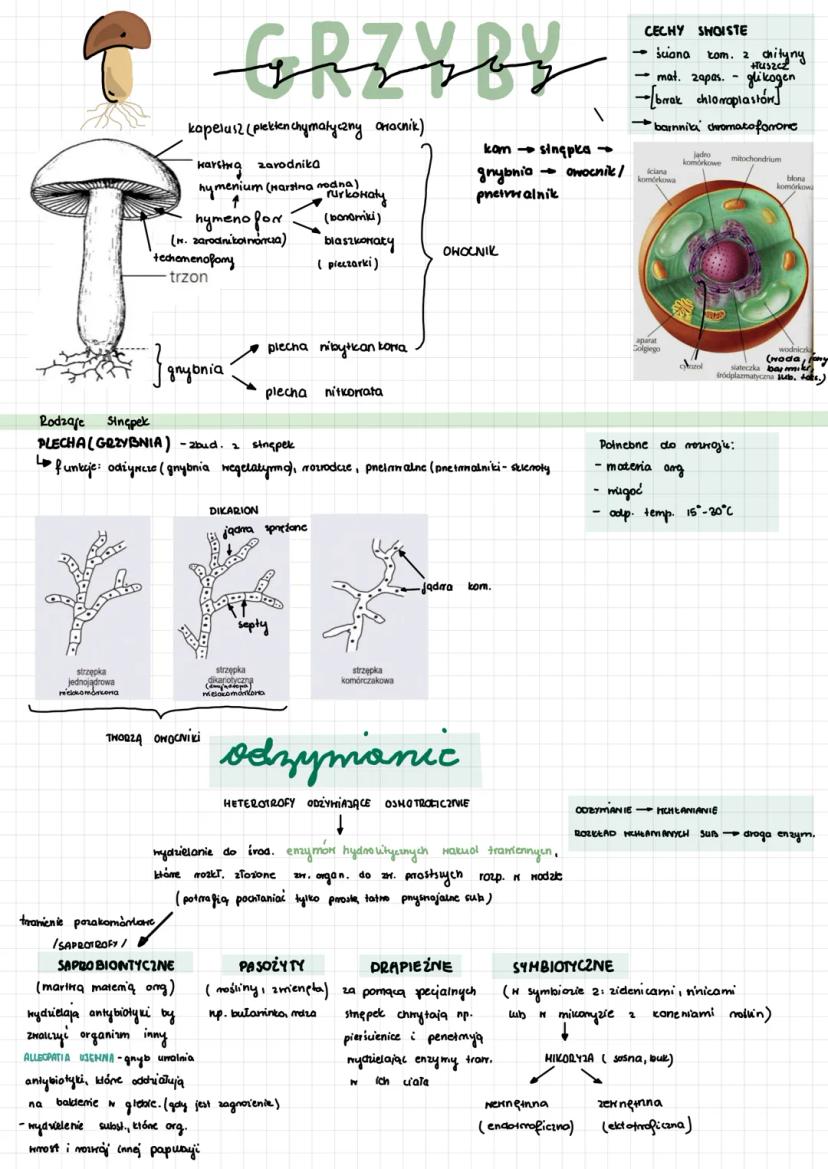 GRZYBY
grzyby
CECHY SWOISTE
→ ściana kom. z chityny
tłuszcz
→ mat. zapas. - glikogen
→ [brak chloroplastów]
→ barwniki chromatoforowe
kapelusz (plektenchymatyczny owocnik)
warstwa zarodnika
hymenium (warstwa rodna)
hymenofor
(w. zarodnikotwórcza)
rurkowaty
(borowiki)
blaszkowaty
(pieczarki)
trzon
OWOCNIK
kom → strzępka →
grzybnia → owocnik/
przetrwalnik
grzybnia
plecha nibytkankowa
plecha nitkowata
jądro komórkowe
mitochondrium
ściana komórkowa
błona komórkowa
aparat Golgiego
cytozol
siateczka śródplazmatyczna
wodniczka
(woda, jony
barwniki,
sub. toks.)
Rodzaje strzępek
PLECHA (GRZYBNIA) - zbud. z strzępek
↳ funkcje: odżywcze (grzybnia wegetatywna), rozrodcze, przetrwalne (przetrwalniki - skleroty
Potrzebne do rozwoju:
- materia org
- wilgoć
- odp. temp. 15°-30°C
DIKARION
jądra sprzężone
septy
jądra kom.
strzępka
jednojądrowa
wielokomórkowa
strzępka
dikariotyczna
(dwujądrowa)
wielokomórkowa
strzępka
komórczakowa
TWORZĄ OWOCNIKI
odżywianie
HETEROTROFY ODŻYWIAJĄCE OSMOTROFICZNIE
ODŻYWIANIE → WCHŁANIANIE
ROZKŁAD WCHŁANIANYCH SUB → droga enzym.
wydzielanie do środ. enzymów hydrolitycznych wakuol trawiennych,
które rozkł. złożone zw. organ. do zw. prostszych rozp. w wodzie
(potrafią pochłaniać tylko proste, łatwo przyswajalne sub)
trawienie pozakomórkowe
/SAPROTROFY/
SAPROBIONTYCZNE
(martwą materią org)
wydzielają antybiotyki by
zwalczyć organizm inny
ALLEOPATIA UJEMNA - grzyb uwalnia
antybiotyki, które oddziałują
na bakterie w glebie. (gdy jest zagrożenie)
- wydzielanie subst., które org.
wzrost i rozwój innej populacji
PASOŻYTY
(rośliny, zwierzęta)
np. buławinka, rdza
DRAPIEŻNE
za pomocą specjalnych
strzępek chwytają np.
pierścienice i penetrują
wydzielając enzymy traw.
w ich ciała
SYMBIOTYCZNE
(w symbiozie z: zielenicami, sinicami
lub w mikoryzie z korzeniami roślin)
MIKORYZA (sosna, buk)
wewnętrzna
(endotroficzna)
zewnętrzna
(ektotroficzna)